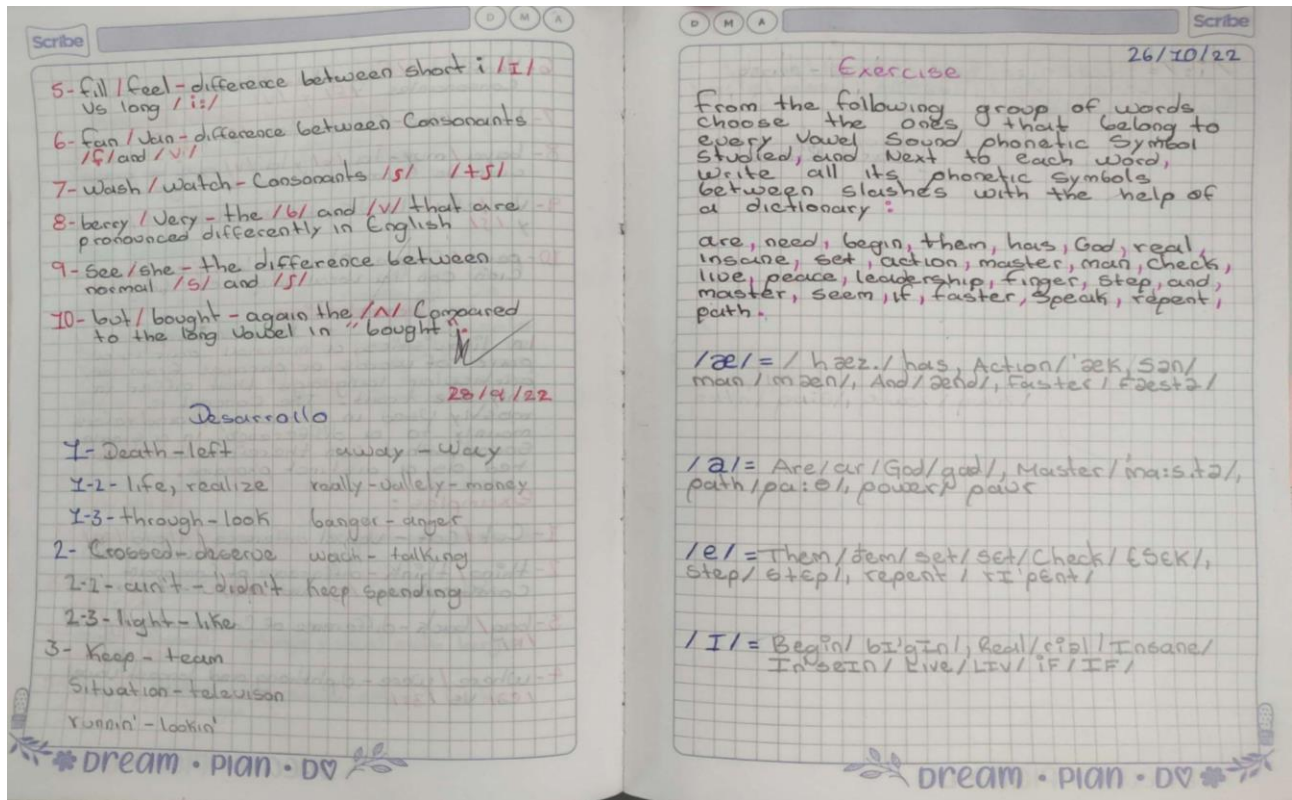 D M A
Scribe
5- fill / feel - difference between short i /I/
Vs long / i:/
6- fan / van - difference between Consonants
/f/ and /v/
7- Wash / Watch - Consonants /ʃ/ /tʃ/
8- berry / Very - the /b/ and /v/ that are
pronounced differently in English
9- See / she - the difference between
normal /s/ and /ʃ/
10- but / bought - again the /ʌ/ Compared
to the long vowel in "bought".
28/9/22
Desarrollo
1- Death - left away - way
1-2- life, realize really - vullely - money
1-3- through - look banger - anger
2- Crossed - deserve wach - talking
2-2- ain't - didn't keep spending
2-3- light - like
3- Keep - team
Situation - televison
runnin' - lookin'
Dream • Plan • Do
D M A
Scribe
26/10/22
Exercise
From the following group of words
choose the ones that belong to
every vowel sound phonetic symbol
studied, and Next to each word,
write all its phonetic symbols
between slashes with the help of
a dictionary:
are, need, begin, them, has, God, real,
insane, set, action, master, man, check,
live, peace, leadership, finger, step, and,
master, seem, if, faster, speak, repent,
path.
/æ/ = / hæz./ has, Action/'æk,ʃən/
man / mæn/, And /ænd/, Faster / Fæstə/
/a/ = Are/ar /God/gad/, Master / 'ma:s.tə/,
path /pa:θ/, power/ paur
/e/ = Them/dem/ set/ sɛt/ Check/ tʃɛk/,
Step/ stɛp/, repent / rI'pɛnt/
/I/ = Begin/ bI'gIn/, Real/riəl/ Insane/
In'seIn/ Live/LIV/ iF/IF/
Dream • Plan • Do